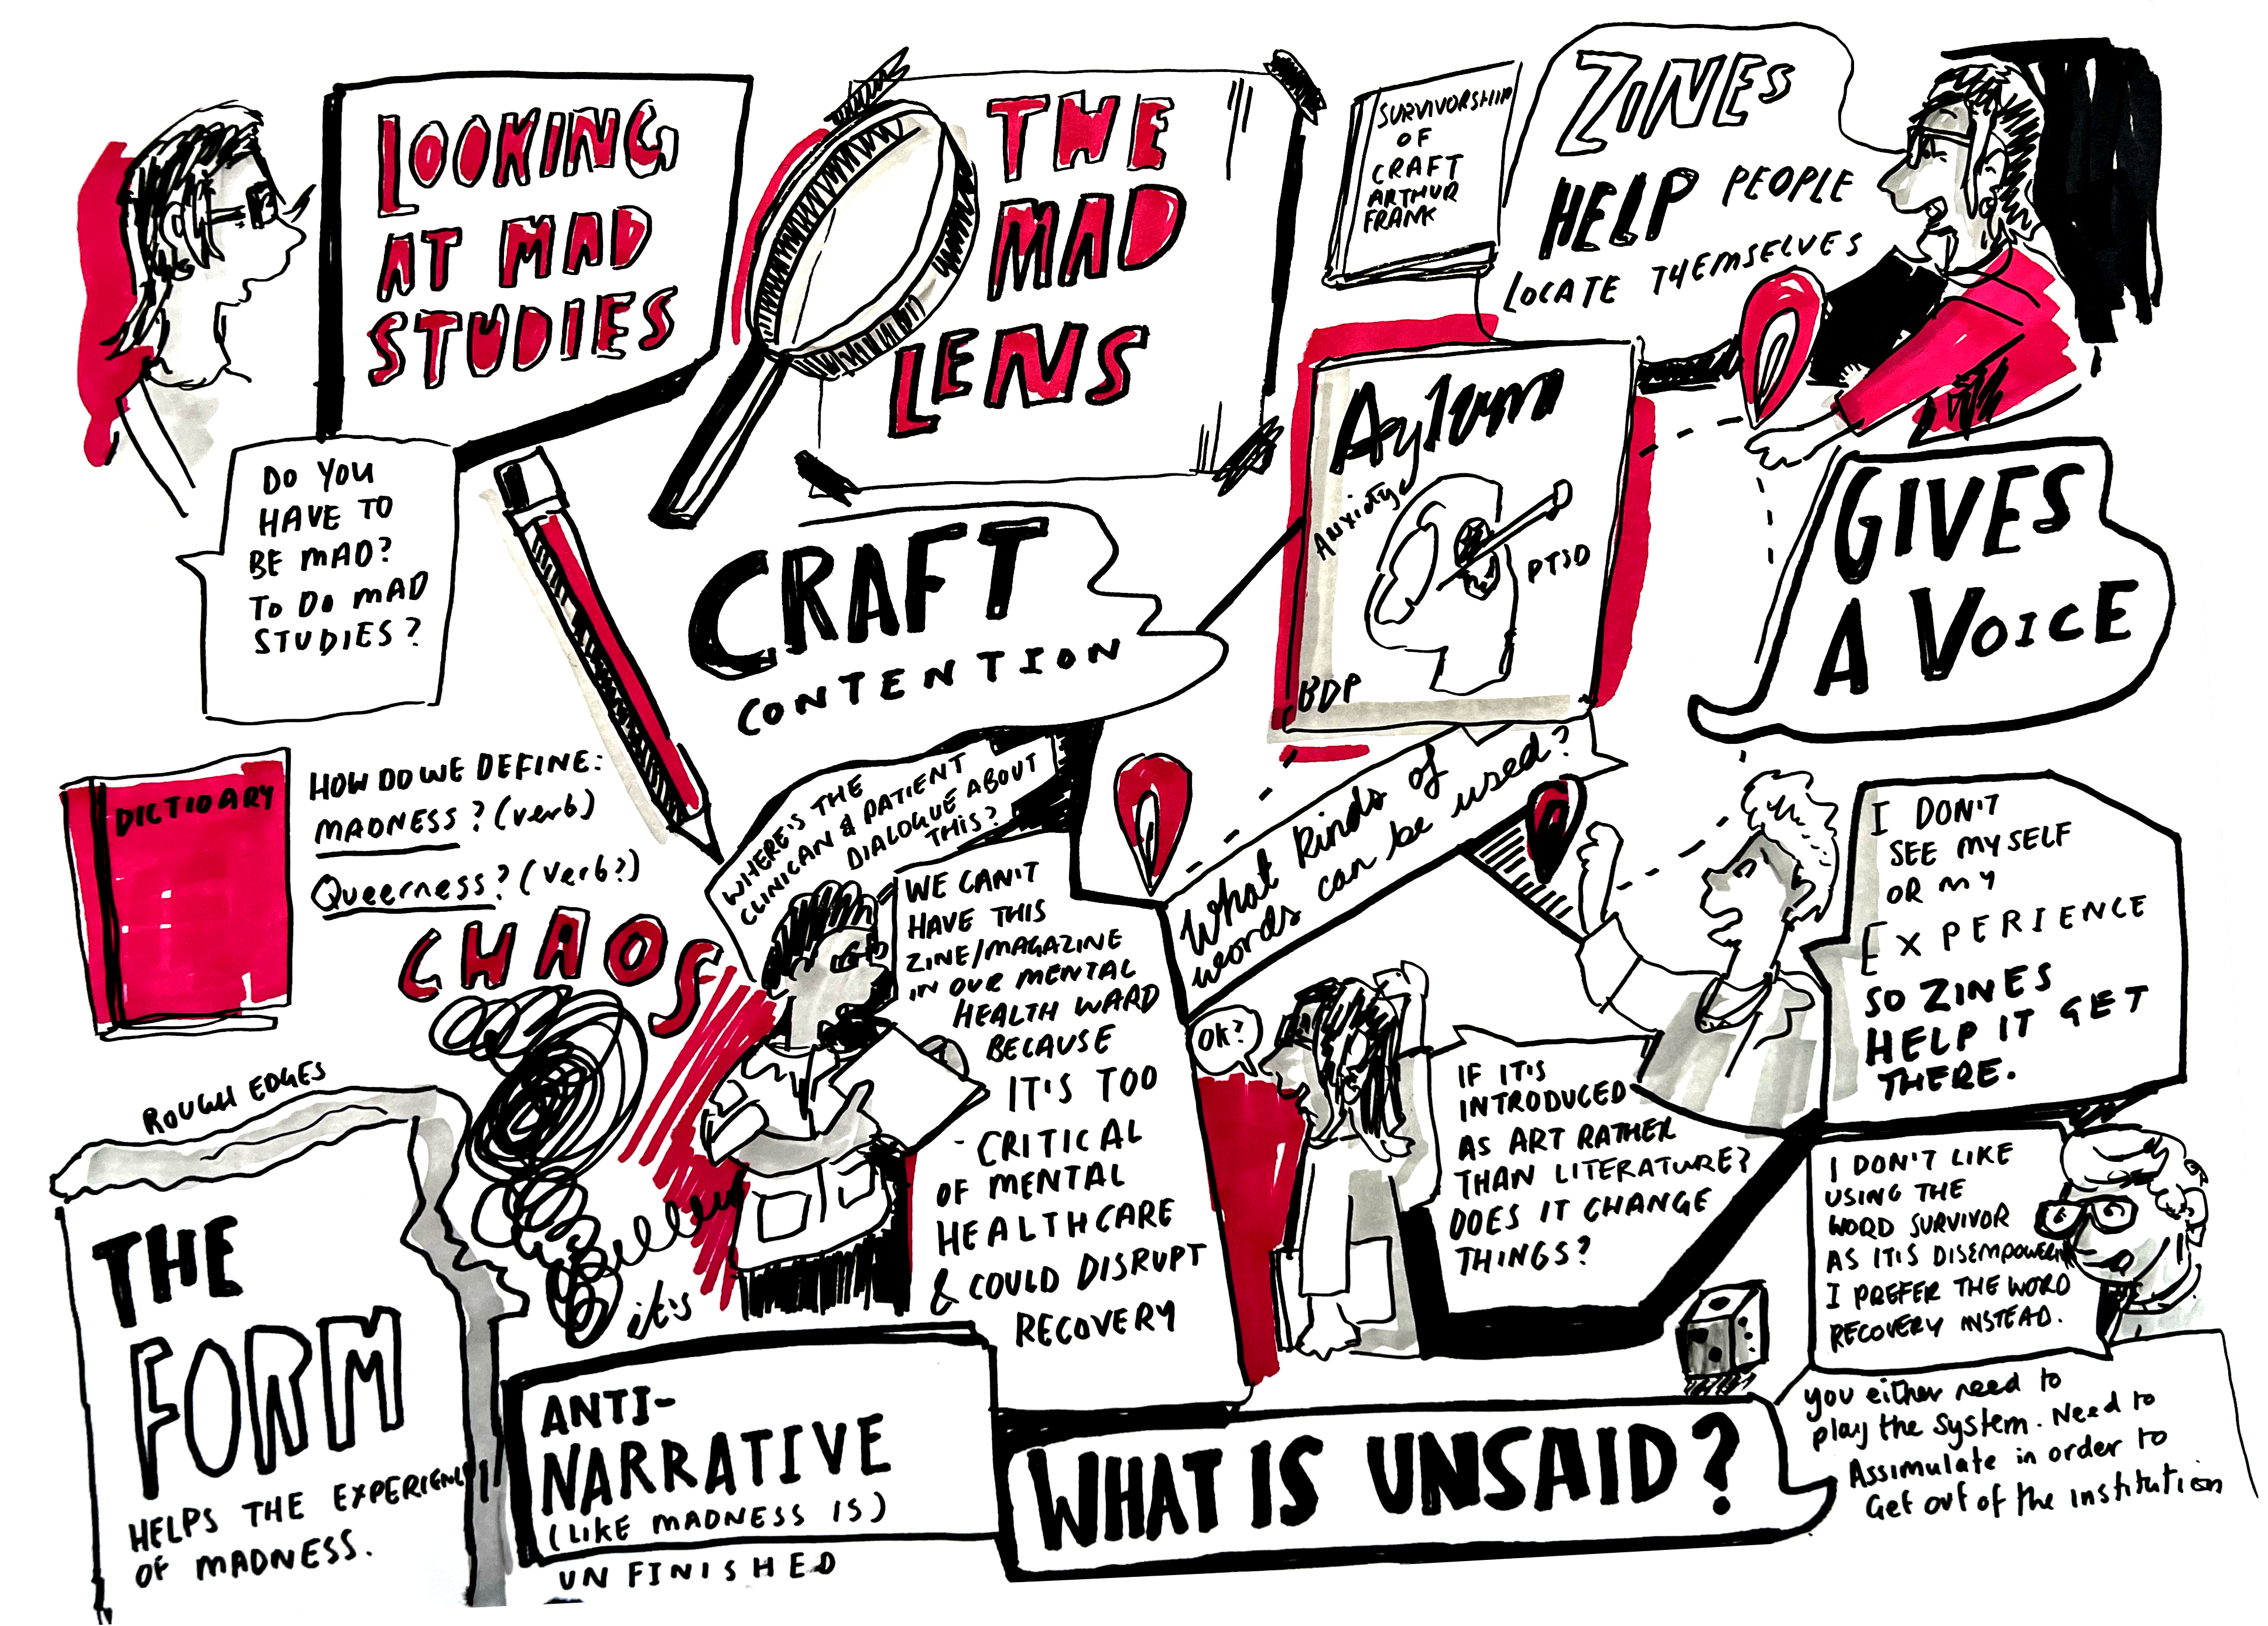 LOOKING
AT MAD
STUDIES
THE
MAD
LENS
SURVIVORSHIP
OF
CRAFT
ARTHUR
FRANK
ZINES
HELP PEOPLE
LOCATE THEMSELVES
DO YOU
HAVE TO
BE MAD?
TO DO MAD
STUDIES?
CRAFT
CONTENTION
Aylum
Anxiety
PTSD
BDP
GIVES
A VOICE
DICTIOARY
HOW DO WE DEFINE:
MADNESS? (verb)
Queerness? (verb?)
CHAOS
WHERE'S THE
CLINICAN & PATIENT
DIALOGUE ABOUT
THIS?
WE CAN'T
HAVE THIS
ZINE/MAGAZINE
IN OUR MENTAL
HEALTH WARD
BECAUSE
IT'S TOO
- CRITICAL
OF MENTAL
HEALTHCARE
& COULD DISRUPT
RECOVERY
What kinds of
words can be used?
OK?
IF IT'S
INTRODUCED
AS ART RATHER
THAN LITERATURE?
DOES IT CHANGE
THINGS?
I DON'T
SEE MYSELF
OR MY
EXPERIENCE
SO ZINES
HELP IT GET
THERE.
I DON'T LIKE
USING THE
WORD SURVIVOR
AS IT'S DISEMPOWERING
I PREFER THE WORD
RECOVERY INSTEAD.
ROUGH EDGES
THE
FORM
HELPS THE EXPERIENCE
OF MADNESS.
it's
ANTI-
NARRATIVE
(LIKE MADNESS IS)
UNFINISHED
WHAT IS UNSAID?
you either need to
play the system. Need to
Assimulate in order to
Get out of the institution